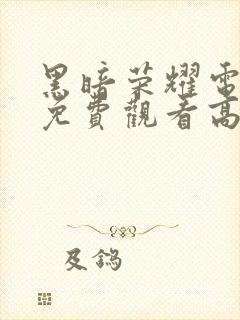 黑暗荣耀電
免費觀看高
及鎢